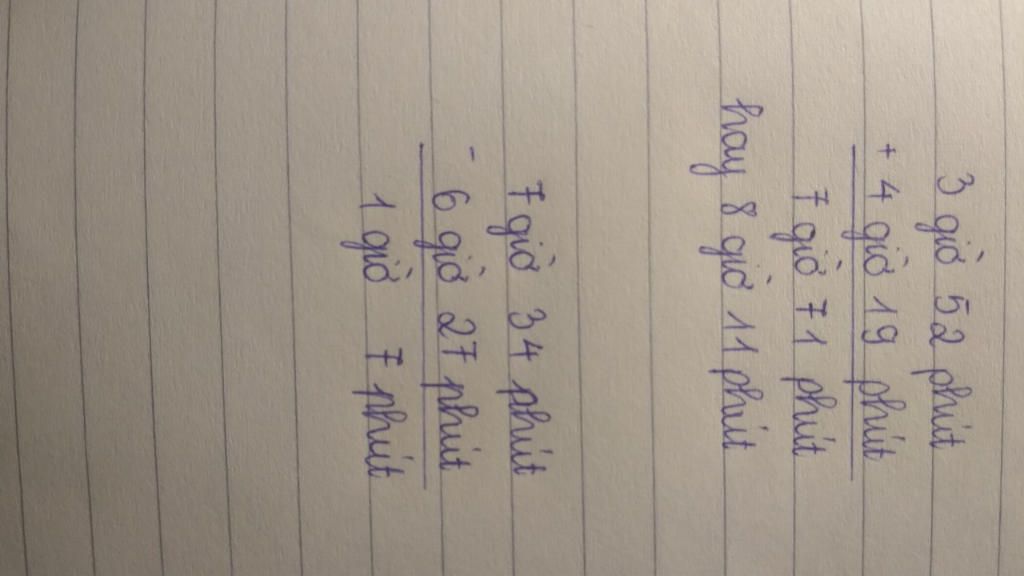 3 giờ 52 phút
+ 4 giờ 19 phút
7 giờ 71 phút
hay 8 giờ 11 phút
7 giờ 34 phút
- 6 giờ 27 phút
1 giờ 7 phút